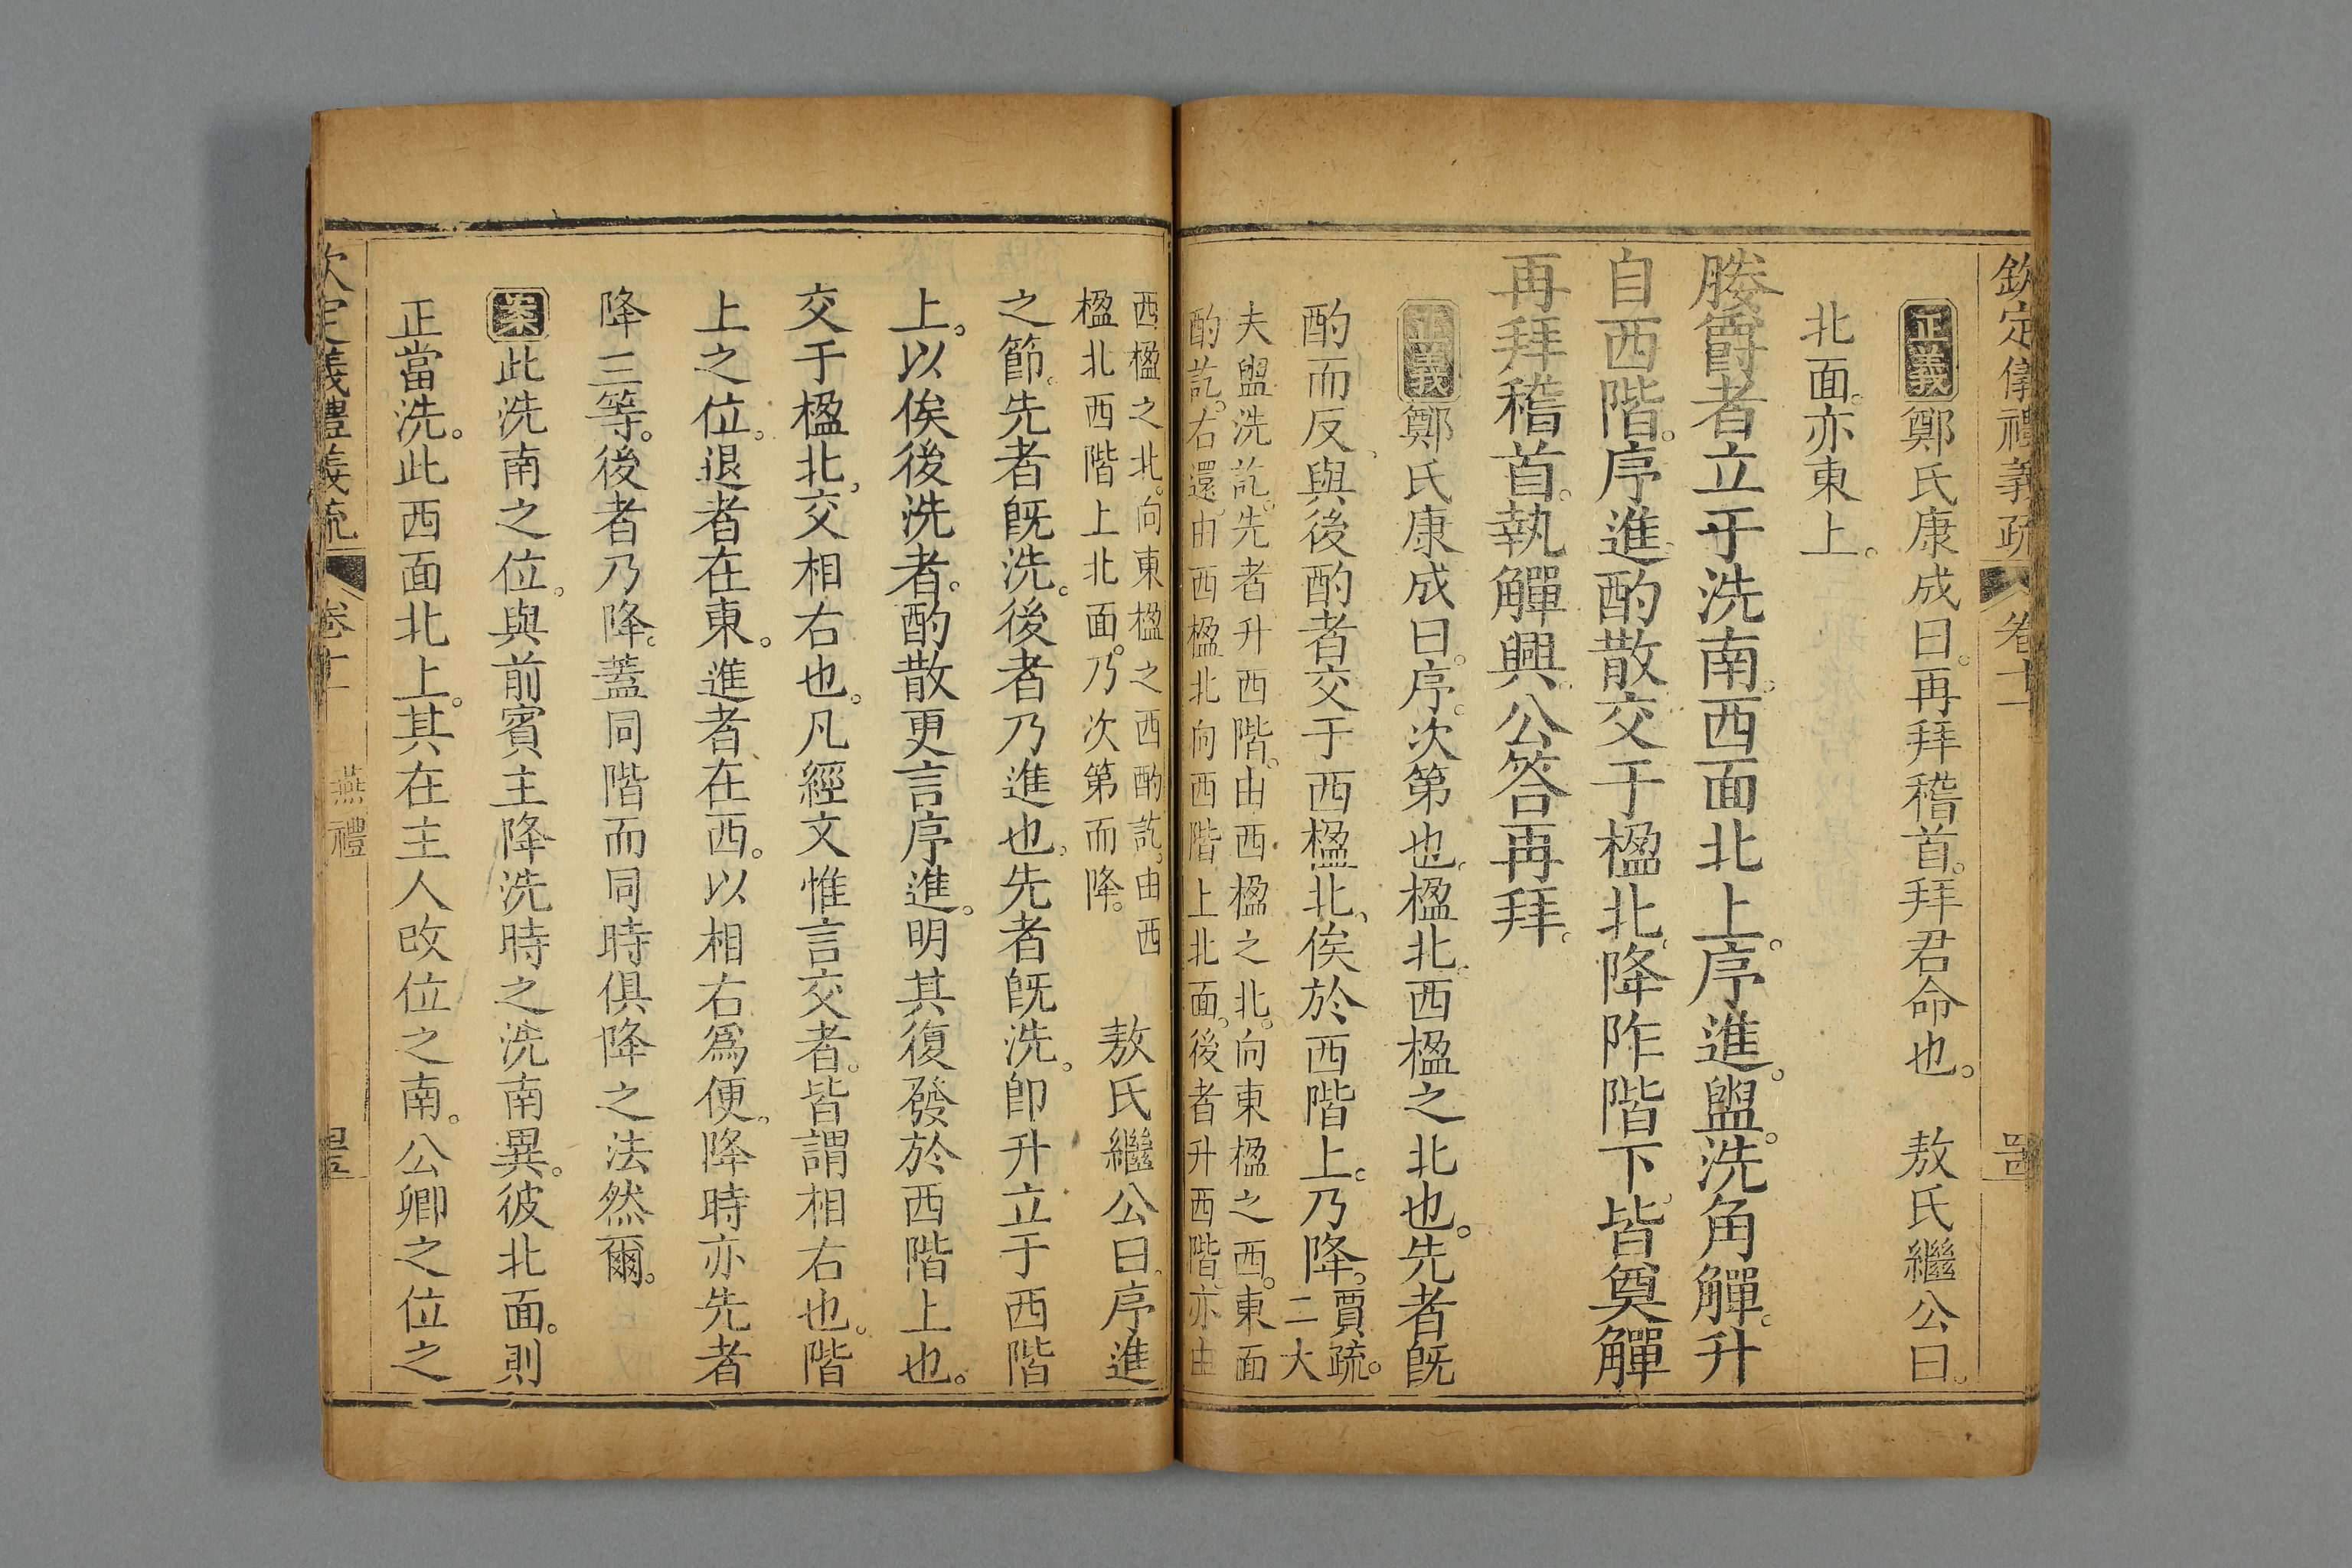 欽定儀禮義疏 卷十一 
正義鄭氏康成曰。再拜稽首。拜君命也。 敖氏繼公曰。
北面。亦東上。
媵爵者立于洗南。西面北上。序進。盥。洗角觶。升
自西階。序進。酌散。交于楹北。降。阼階下。皆奠觶
再拜稽首。執觶興。公答再拜。
正義鄭氏康成曰。序。次第也。楹北。西楹之北也。先者既
酌而反、與後酌者交于西楹北、俟於西階上。乃降。賈疏。
二大
夫盥洗訖。先者升西階。由西楹之北。向東楹之西。東面
酌訖。右還。由西楹北向西階上北面。後者升西階。亦由
西楹之北。向東楹之西酌訖。由西
楹北西階上北面。乃次第而降。
敖氏繼公曰。序進
之節。先者既洗。後者乃進也。先者既洗。卽升立于西階
上。以俟後洗者。酌散更言序進。明其復發於西階上也。
交于楹北。交相右也。凡經文惟言交者。皆謂相右也。階
上之位。退者在東。進者在西。以相右爲便。降時亦先者
降三等。後者乃降。蓋同階而同時俱降之法然爾。
案此洗南之位。與前賓主降洗時之洗南異。彼北面。則
正當洗。此西面北上。其在主人改位之南。公卿之位之
欽定儀禮義疏 卷十一 燕禮